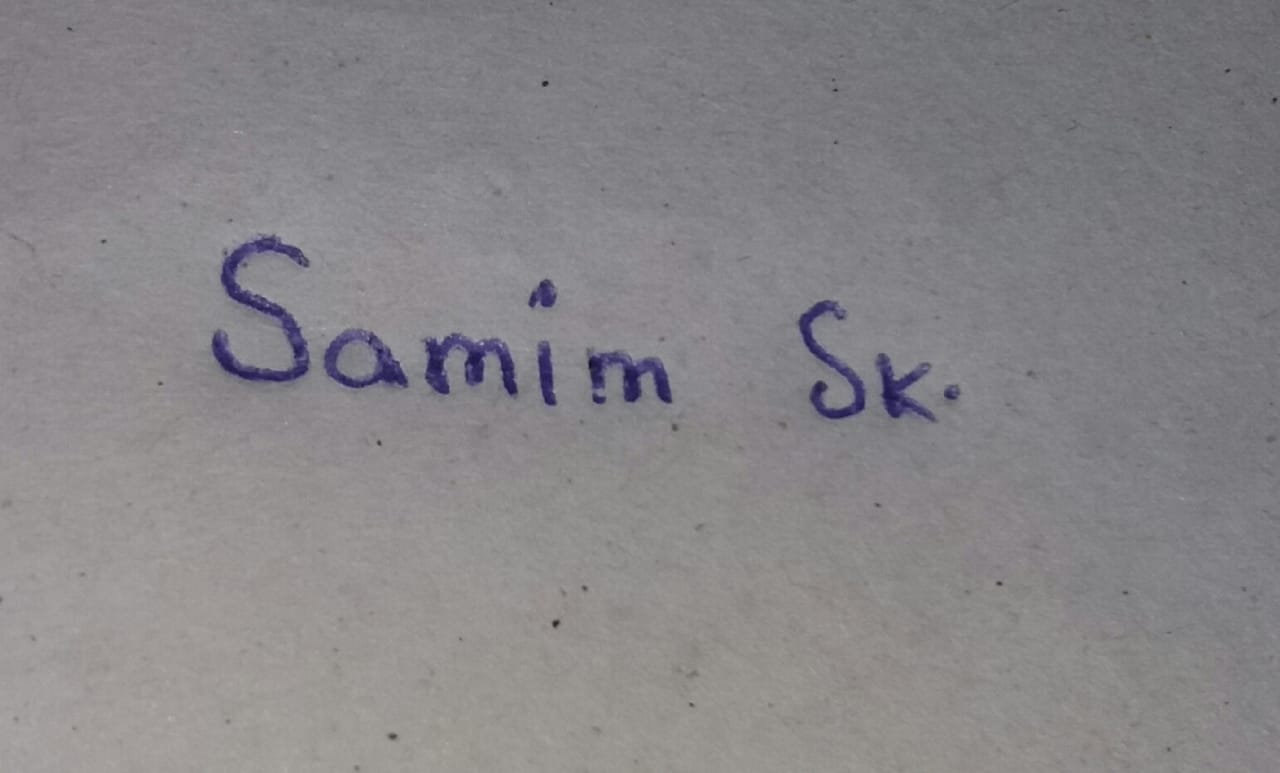 Samim Sk.